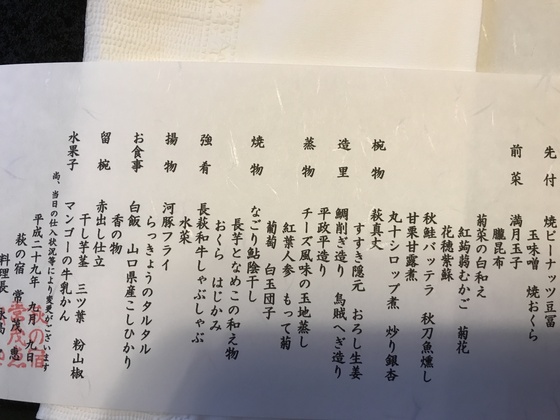 先付 焼ピーナッツ豆冨
玉味噌 焼おくら
前菜 満月玉子
朧昆布
菊菜の白和え
紅蒟蒻むかご 菊花
花穂紫蘇
秋鮭バッテラ 秋刀魚燻し
甘栗甘露煮
丸十シロップ煮 炒り銀杏
椀物 萩真丈
すすき隠元 おろし生姜
造里 鯛削ぎ造り 烏賊へぎ造り
平政平造り
蒸物 チーズ風味の玉地蒸し
紅葉人参 もって菊
葡萄 白玉団子
焼物 なごり鮎陰干し
長芋となめこの和え物
おくら はじかみ
強肴 長萩和牛しゃぶしゃぶ
水菜
揚物 河豚フライ
らっきょうのタルタル
お食事 白飯 山口県産こしひかり
香の物
留椀 赤出し仕立
干し芋茎 三ツ葉 粉山椒
水果子 マンゴーの牛乳かん
尚、当日の仕入状況等により変更がございます
平成二十九年 九月 九日
萩の宿 常茂恵
料理長